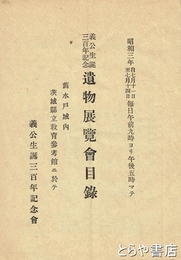 昭和三年自七月十一日至七月十四日毎日午前九時ヨリ午後五時マデ
義公生誕三百年記念 遺物展覽會目錄
舊水戸城内
茨城縣立敎育參考館ニ於テ
義公生誕三百年記念會
とらや書房